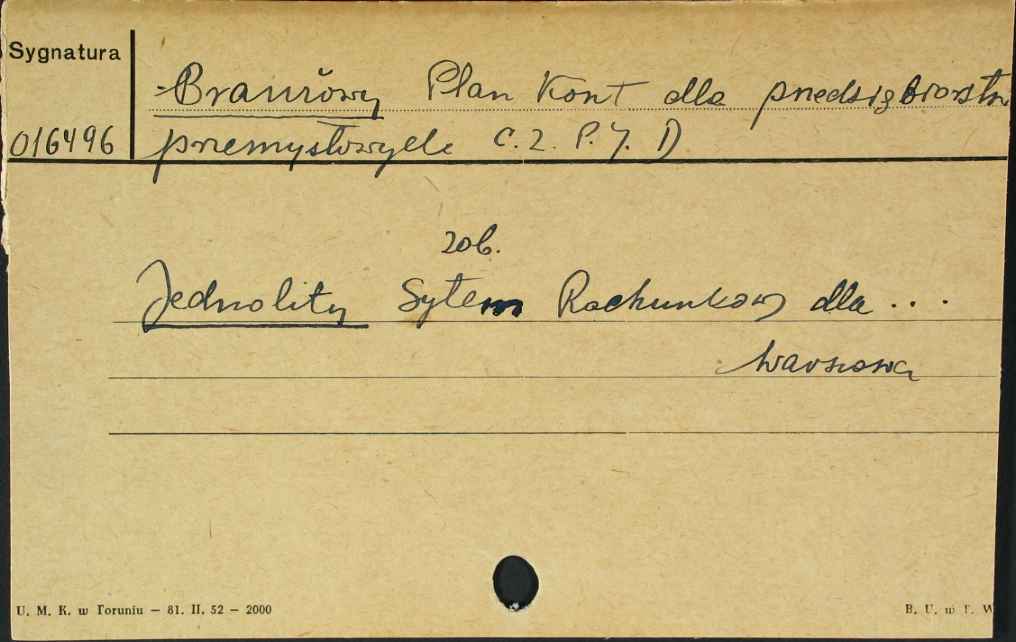 Sygnatura
Branżowy Plan Kont dla przedsiębiorstw
016496 przemysłowych C. Z. P. J. D
zob.
Jednolity Sytem Rachunkowy dla ...
Warszawa
U. M. K. w Toruniu — 81. II. 52 — 2000
B. U. w T. W